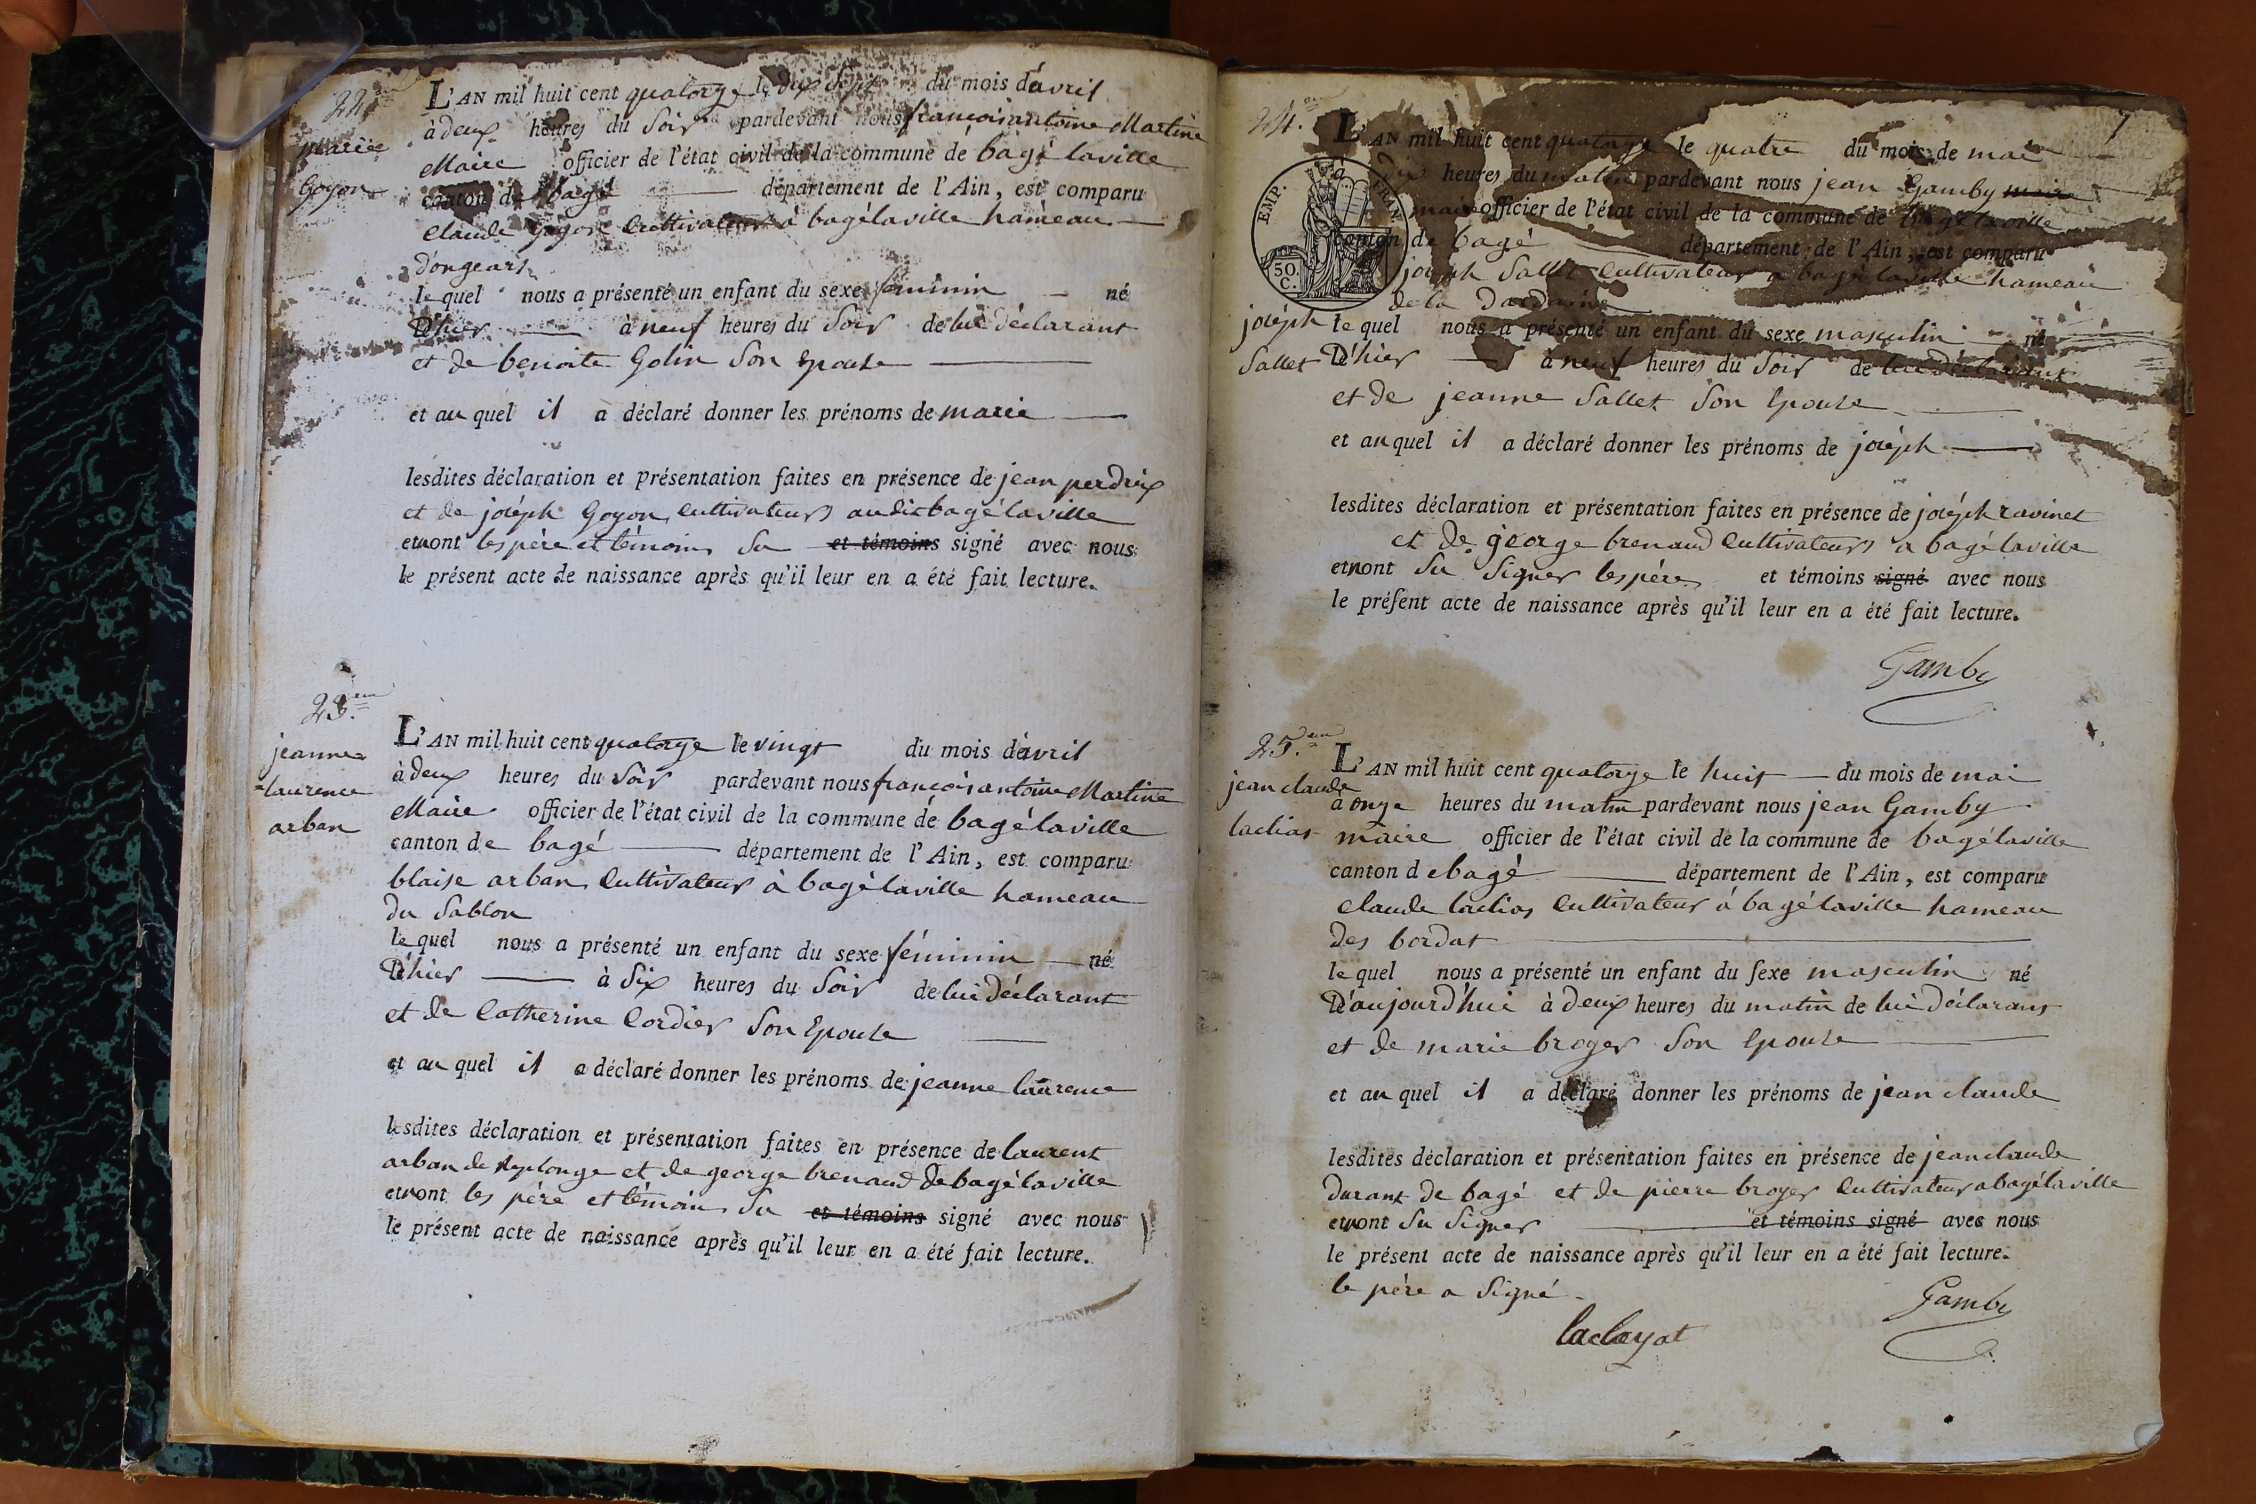 22.em
marie
Goyon
L'AN mil huit cent quatorze le dix sept du mois d'avril
à deux heures du Soir pardevant nous françois antoine Martine
Maire officier de l'état civil de la commune de bagé laville
canton de bagé département de l'Ain, est comparu
Claude Goyon Cultivateur à bagélaville hameau
d'ongears
lequel nous a présenté un enfant du sexe féminin né
D'hier à neuf heures du Soir de lui déclarant
et de benoite Golin Son Epouse
et au quel il a déclaré donner les prénoms de marie
lesdites déclaration et présentation faites en présence de jean perdrix
et de joséph Goyon Cultivateurs audit bagélaville
et n'ont les père et témoins Su et témoins signé avec nous
le présent acte de naissance après qu'il leur en a été fait lecture.
23.em
jeanne
laurence
arban
L'AN mil huit cent quatorze le vingt du mois d'avril
à deux heures du Soir pardevant nous françois antoine Martine
Maire officier de l'état civil de la commune de bagélaville
canton de bagé département de l'Ain, est comparu
blaise arban Cultivateur à bagélaville hameau
du Sablon
lequel nous a présenté un enfant du sexe féminin né
D'hier à Six heures du Soir de lui déclarant
et de Catherine Cordier Son Epouse
et au quel il a déclaré donner les prénoms de jeanne laurence
lesdites déclaration et présentation faites en présence de laurent
arban de Replonge et de george brenaud de bagélaville
et n'ont les père et témoins Su et témoins signé avec nous
le présent acte de naissance après qu'il leur en a été fait lecture.
7
24.em
joséph
Sallet
EMP. FRAN.
50. C.
L'AN mil huit cent quatorze le quatre du mois de mai
à dix heures du matin pardevant nous jean Gamby maire
maire officier de l'état civil de la commune de bagélaville
canton de bagé département de l'Ain, est comparu
joseph Sallet Cultivateur à bagélaville hameau
de la
lequel nous a présenté un enfant du sexe masculin né
D'hier à neuf heures du Soir de lui déclarant
et de jeanne Sallet Son Epouse
et au quel il a déclaré donner les prénoms de joséph
lesdites déclaration et présentation faites en présence de joséph ravinet
et de george brenaud Cultivateurs a bagélaville
et n'ont Su Signer les père et témoins signé avec nous
le présent acte de naissance après qu'il leur en a été fait lecture.
Gamby
25.em
jean claude
laclias
L'AN mil huit cent quatorze le huit du mois de mai
à onze heures du matin pardevant nous jean Gamby
maire officier de l'état civil de la commune de bagélaville
canton de bagé département de l'Ain, est comparu
Claude laclias Cultivateur à bagélaville hameau
des bordat
lequel nous a présenté un enfant du sexe masculin né
D'aujourd'hui à deux heures du matin de lui déclarant
et de marie broyer Son Epouse
et au quel il a déclaré donner les prénoms de jean claude
lesdites déclaration et présentation faites en présence de jean claude
durant de bagé et de pierre broyer Cultivateur a bagélaville
et n'ont Su Signer et témoins signé avec nous
le présent acte de naissance après qu'il leur en a été fait lecture.
le père a Signé
laclayat
Gamby